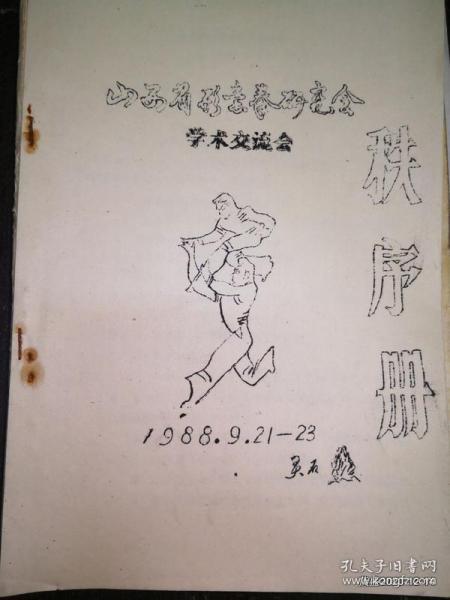 山西省形意拳研究会
学术交流会
秩序册
1988.9.21-23
孔夫子旧书网